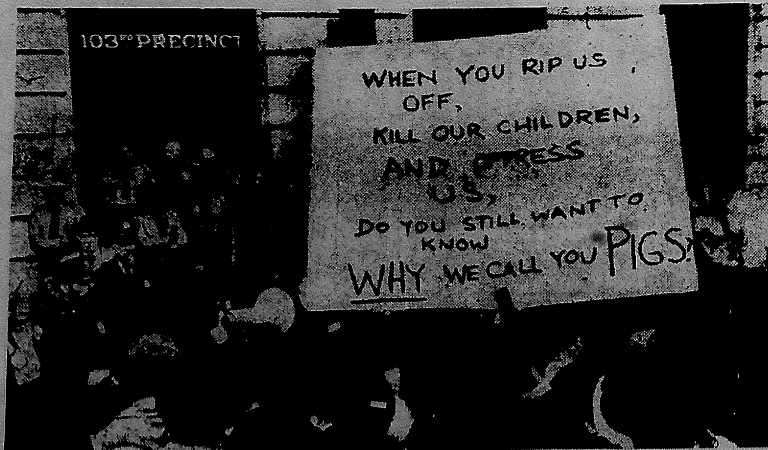 103RD PRECINCT
WHEN YOU RIP US
OFF,
KILL OUR CHILDREN,
AND OPRESS
US,
DO YOU STILL WANT TO
KNOW
WHY WE CALL YOU PIGS?